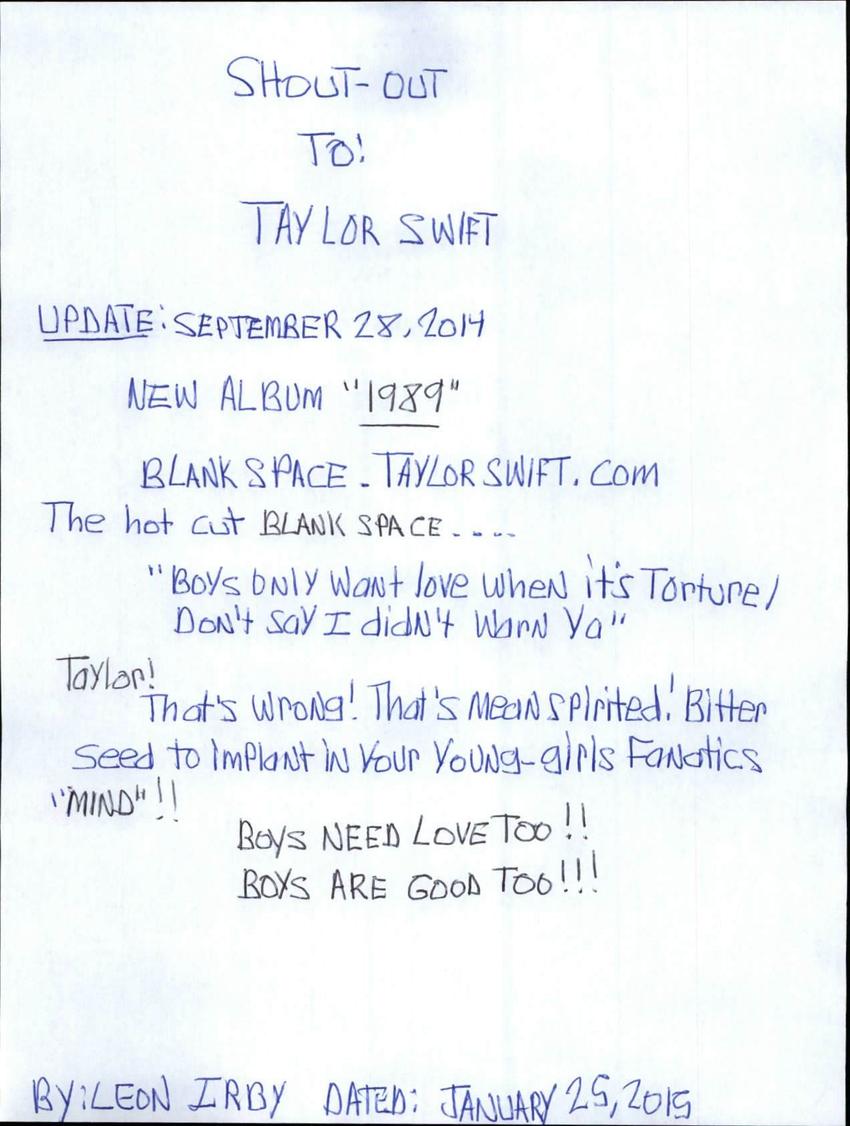 SHOUT-OUT
TO!
TAYLOR SWIFT
UPDATE: SEPTEMBER 28, 2014
NEW ALBUM "1989"
BLANK SPACE - TAYLOR SWIFT. COM
The hot cut BLANK SPACE....
"Boys only want love when it's Torture/
Don't say I didn't warn Ya"
Taylor!
That's wrong! That's mean spirited! Bitter
seed to implant in your young-girls Fanatics
"MIND"!!
BOYS NEED LOVE TOO!!
BOYS ARE GOOD TOO!!!
BY: LEON IRBY DATED: JANUARY 25, 2015